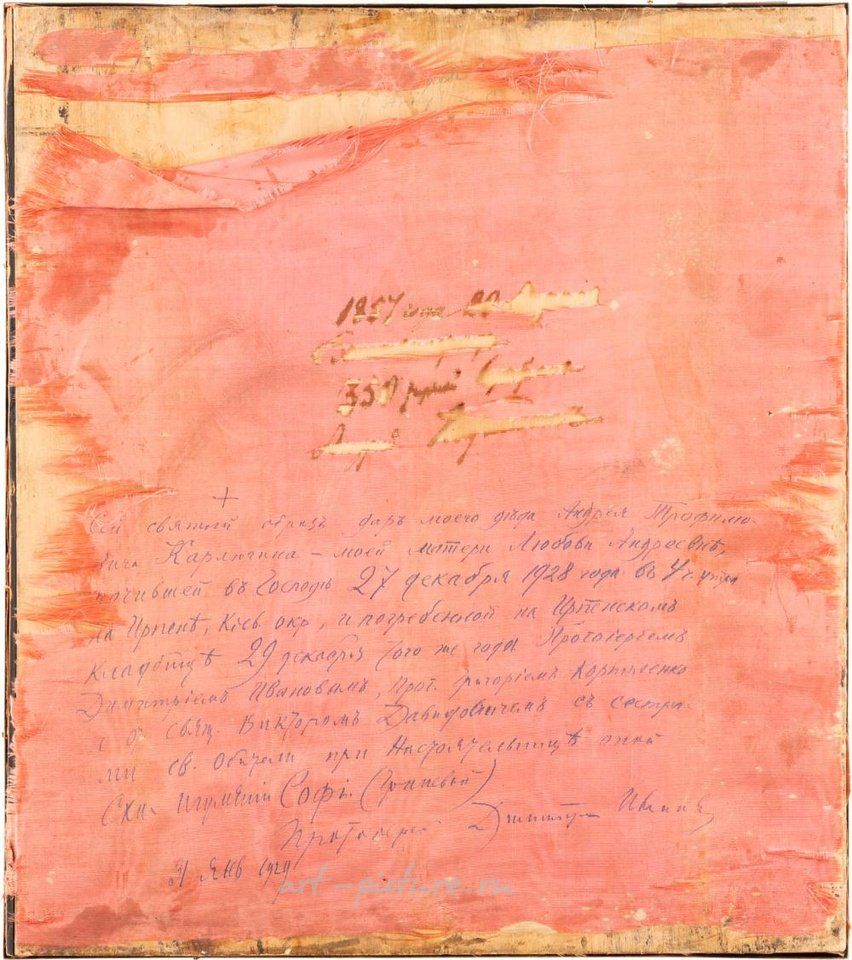 1857 года 20
350 рублей
+
Сей святой образъ даръ моего дѣда Андрея Трофимо-
вича Карлюгина – моей матери Любови Андреевнѣ,
почившей въ Господѣ 27 декабря 1928 года въ 4 ч. утра
на Ирпенѣ, Кіев. окр, и погребенной на Ирпенскомъ
кладбищѣ 29 декабря того же года Протоіереемъ
Димитріемъ Ивановымъ, Прот. Григоріемъ Корниенко
и Свящ. Викторомъ Давидовичемъ съ сестра-
ми св. Обители при Настоятельницѣ оной
Схи-игуменіи Софіи (Гриневой)
Протоіерей Димитрій Ивановъ
Янв 1929
art-picture.ru